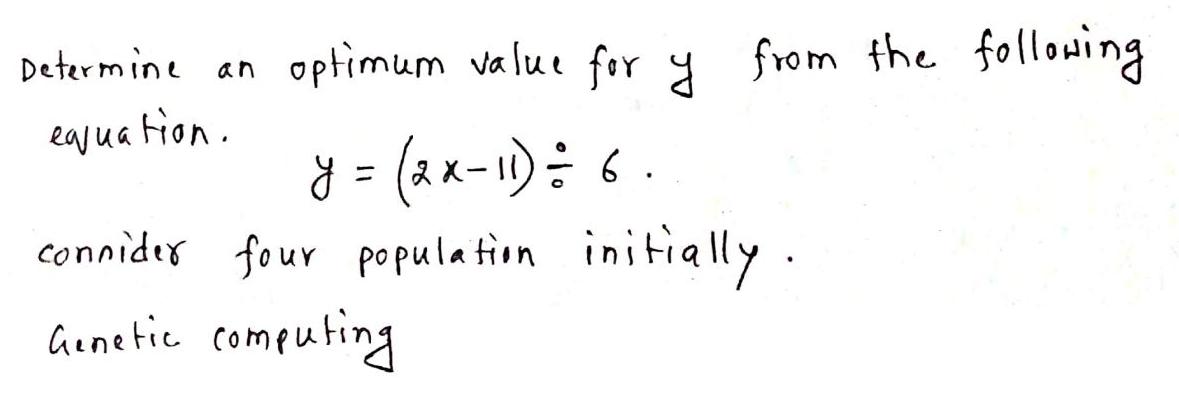 Determine an optimum value for y from the following
equation.
y = (2x-11) ÷ 6 .
connider four population initially .
Genetic computing